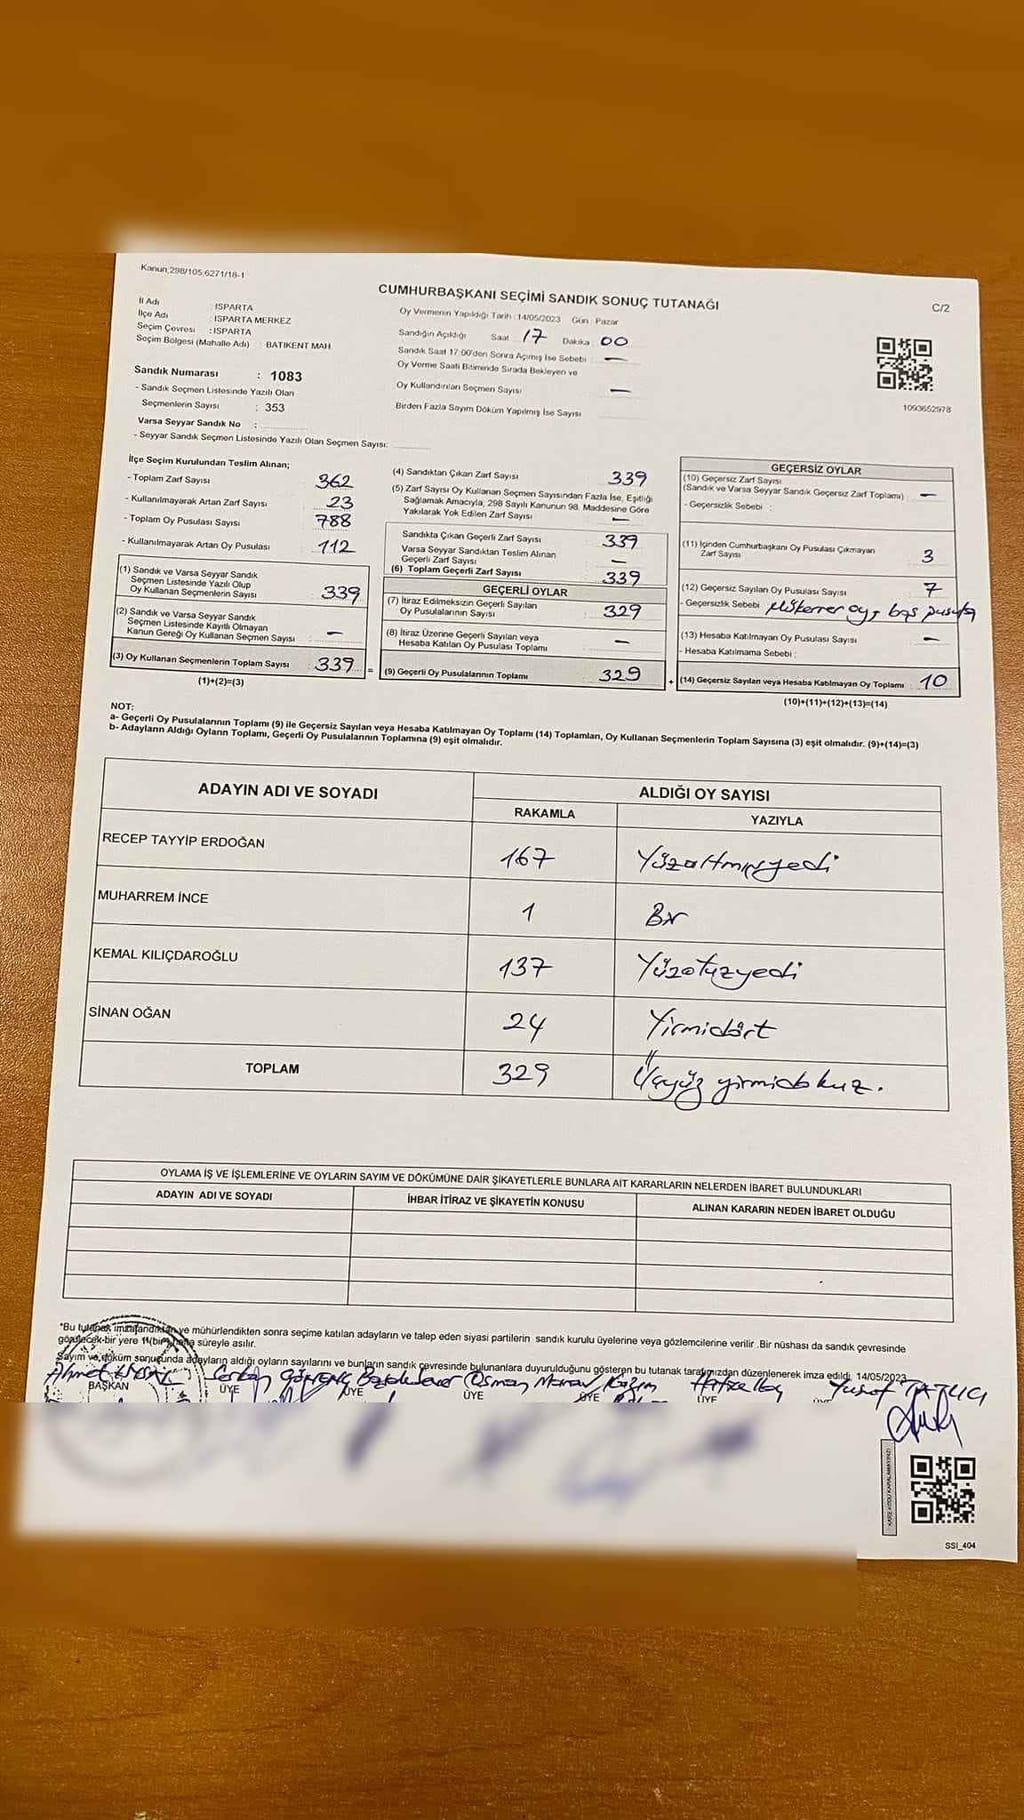 Kanun;298/105;6271/18-1
CUMHURBAŞKANI SEÇİMİ SANDIK SONUÇ TUTANAĞI
C/2
İl Adı : ISPARTA
İlçe Adı : ISPARTA MERKEZ
Seçim Çevresi : ISPARTA
Seçim Bölgesi (Mahalle Adı) : BATIKENT MAH.
Sandık Numarası : 1083
- Sandık Seçmen Listesinde Yazılı Olan
Seçmenlerin Sayısı : 353
Varsa Seyyar Sandık No :
- Seyyar Sandık Seçmen Listesinde Yazılı Olan Seçmen Sayısı:
Oy Vermenin Yapıldığı Tarih :14/05/2023 Gün : Pazar
Sandığın Açıldığı Saat 17 Dakika 00
Sandık Saat 17:00'den Sonra Açımış İse Sebebi —
Oy Verme Saati Bitiminde Sırada Bekleyen ve
Oy Kullandırılan Seçmen Sayısı —
Birden Fazla Sayım Döküm Yapılmış İse Sayısı
1093652978
İlçe Seçim Kurulundan Teslim Alınan;
- Toplam Zarf Sayısı 362
- Kullanılmayarak Artan Zarf Sayısı 23
- Toplam Oy Pusulası Sayısı 788
- Kullanılmayarak Artan Oy Pusulası 112
(1) Sandık ve Varsa Seyyar Sandık
Seçmen Listesinde Yazılı Olup
Oy Kullanan Seçmenlerin Sayısı 339
(2) Sandık ve Varsa Seyyar Sandık
Seçmen Listesinde Kayıtlı Olmayan
Kanun Gereği Oy Kullanan Seçmen Sayısı —
(3) Oy Kullanan Seçmenlerin Toplam Sayısı 339 =
(1)+(2)=(3)
(4) Sandıktan Çıkan Zarf Sayısı 339
(5) Zarf Sayısı Oy Kullanan Seçmen Sayısından Fazla İse, Eşitliği
Sağlamak Amacıyla, 298 Sayılı Kanunun 98. Maddesine Göre
Yakılarak Yok Edilen Zarf Sayısı —
Sandıkta Çıkan Geçerli Zarf Sayısı 339
Varsa Seyyar Sandıktan Teslim Alınan
Geçerli Zarf Sayısı —
(6) Toplam Geçerli Zarf Sayısı 339
GEÇERLİ OYLAR
(7) İtiraz Edilmeksizin Geçerli Sayılan
Oy Pusulalarının Sayısı 329
(8) İtiraz Üzerine Geçerli Sayılan veya
Hesaba Katılan Oy Pusulası Toplamı —
(9) Geçerli Oy Pusulalarının Toplamı 329 +
GEÇERSİZ OYLAR
(10) Geçersiz Zarf Sayısı
(Sandık ve Varsa Seyyar Sandık Geçersiz Zarf Toplamı) —
- Geçersizlik Sebebi :
(11) İçinden Cumhurbaşkanı Oy Pusulası Çıkmayan
Zarf Sayısı 3
(12) Geçersiz Sayılan Oy Pusulası Sayısı 7
- Geçersizlik Sebebi Mükerrer oy, boş pusula
(13) Hesaba Katılmayan Oy Pusulası Sayısı —
- Hesaba Katılmama Sebebi :
(14) Geçersiz Sayılan veya Hesaba Katılmayan Oy Toplamı 10
(10)+(11)+(12)+(13)=(14)
NOT:
a- Geçerli Oy Pusulalarının Toplamı (9) ile Geçersiz Sayılan veya Hesaba Katılmayan Oy Toplamı (14) Toplamları, Oy Kullanan Seçmenlerin Toplam Sayısına (3) eşit olmalıdır. (9)+(14)=(3)
b- Adayların Aldığı Oyların Toplamı, Geçerli Oy Pusulalarının Toplamına (9) eşit olmalıdır.
ADAYIN ADI VE SOYADI ALDIĞI OY SAYISI
RAKAMLA YAZIYLA
RECEP TAYYİP ERDOĞAN 167 Yüzaltmışyedi
MUHARREM İNCE 1 Bir
KEMAL KILIÇDAROĞLU 137 Yüzotuzyedi
SİNAN OĞAN 24 Yirmidört
TOPLAM 329 Üçyüz yirmidokuz.
OYLAMA İŞ VE İŞLEMLERİNE VE OYLARIN SAYIM VE DÖKÜMÜNE DAİR ŞİKAYETLERLE BUNLARA AİT KARARLARIN NELERDEN İBARET BULUNDUKLARI
ADAYIN ADI VE SOYADI İHBAR İTİRAZ VE ŞİKAYETİN KONUSU ALINAN KARARIN NEDEN İBARET OLDUĞU
*Bu tutanak imzalandıktan ve mühürlendikten sonra seçime katılan adayların ve talep eden siyasi partilerin sandık kurulu üyelerine veya gözlemcilerine verilir .Bir nüshası da sandık çevresinde
görülecek bir yere 1 (bir) hafta süreyle asılır.
Sayım ve döküm sonucunda adayların aldığı oyların sayılarını ve bunların sandık çevresinde bulunanlara duyurulduğunu gösteren bu tutanak tarafımızdan düzenlenerek imza edildi. 14/05/2023
Ahmet Serkan Osman Kazım Yusuf
BAŞKAN ÜYE ÜYE ÜYE ÜYE ÜYE
SSİ_404